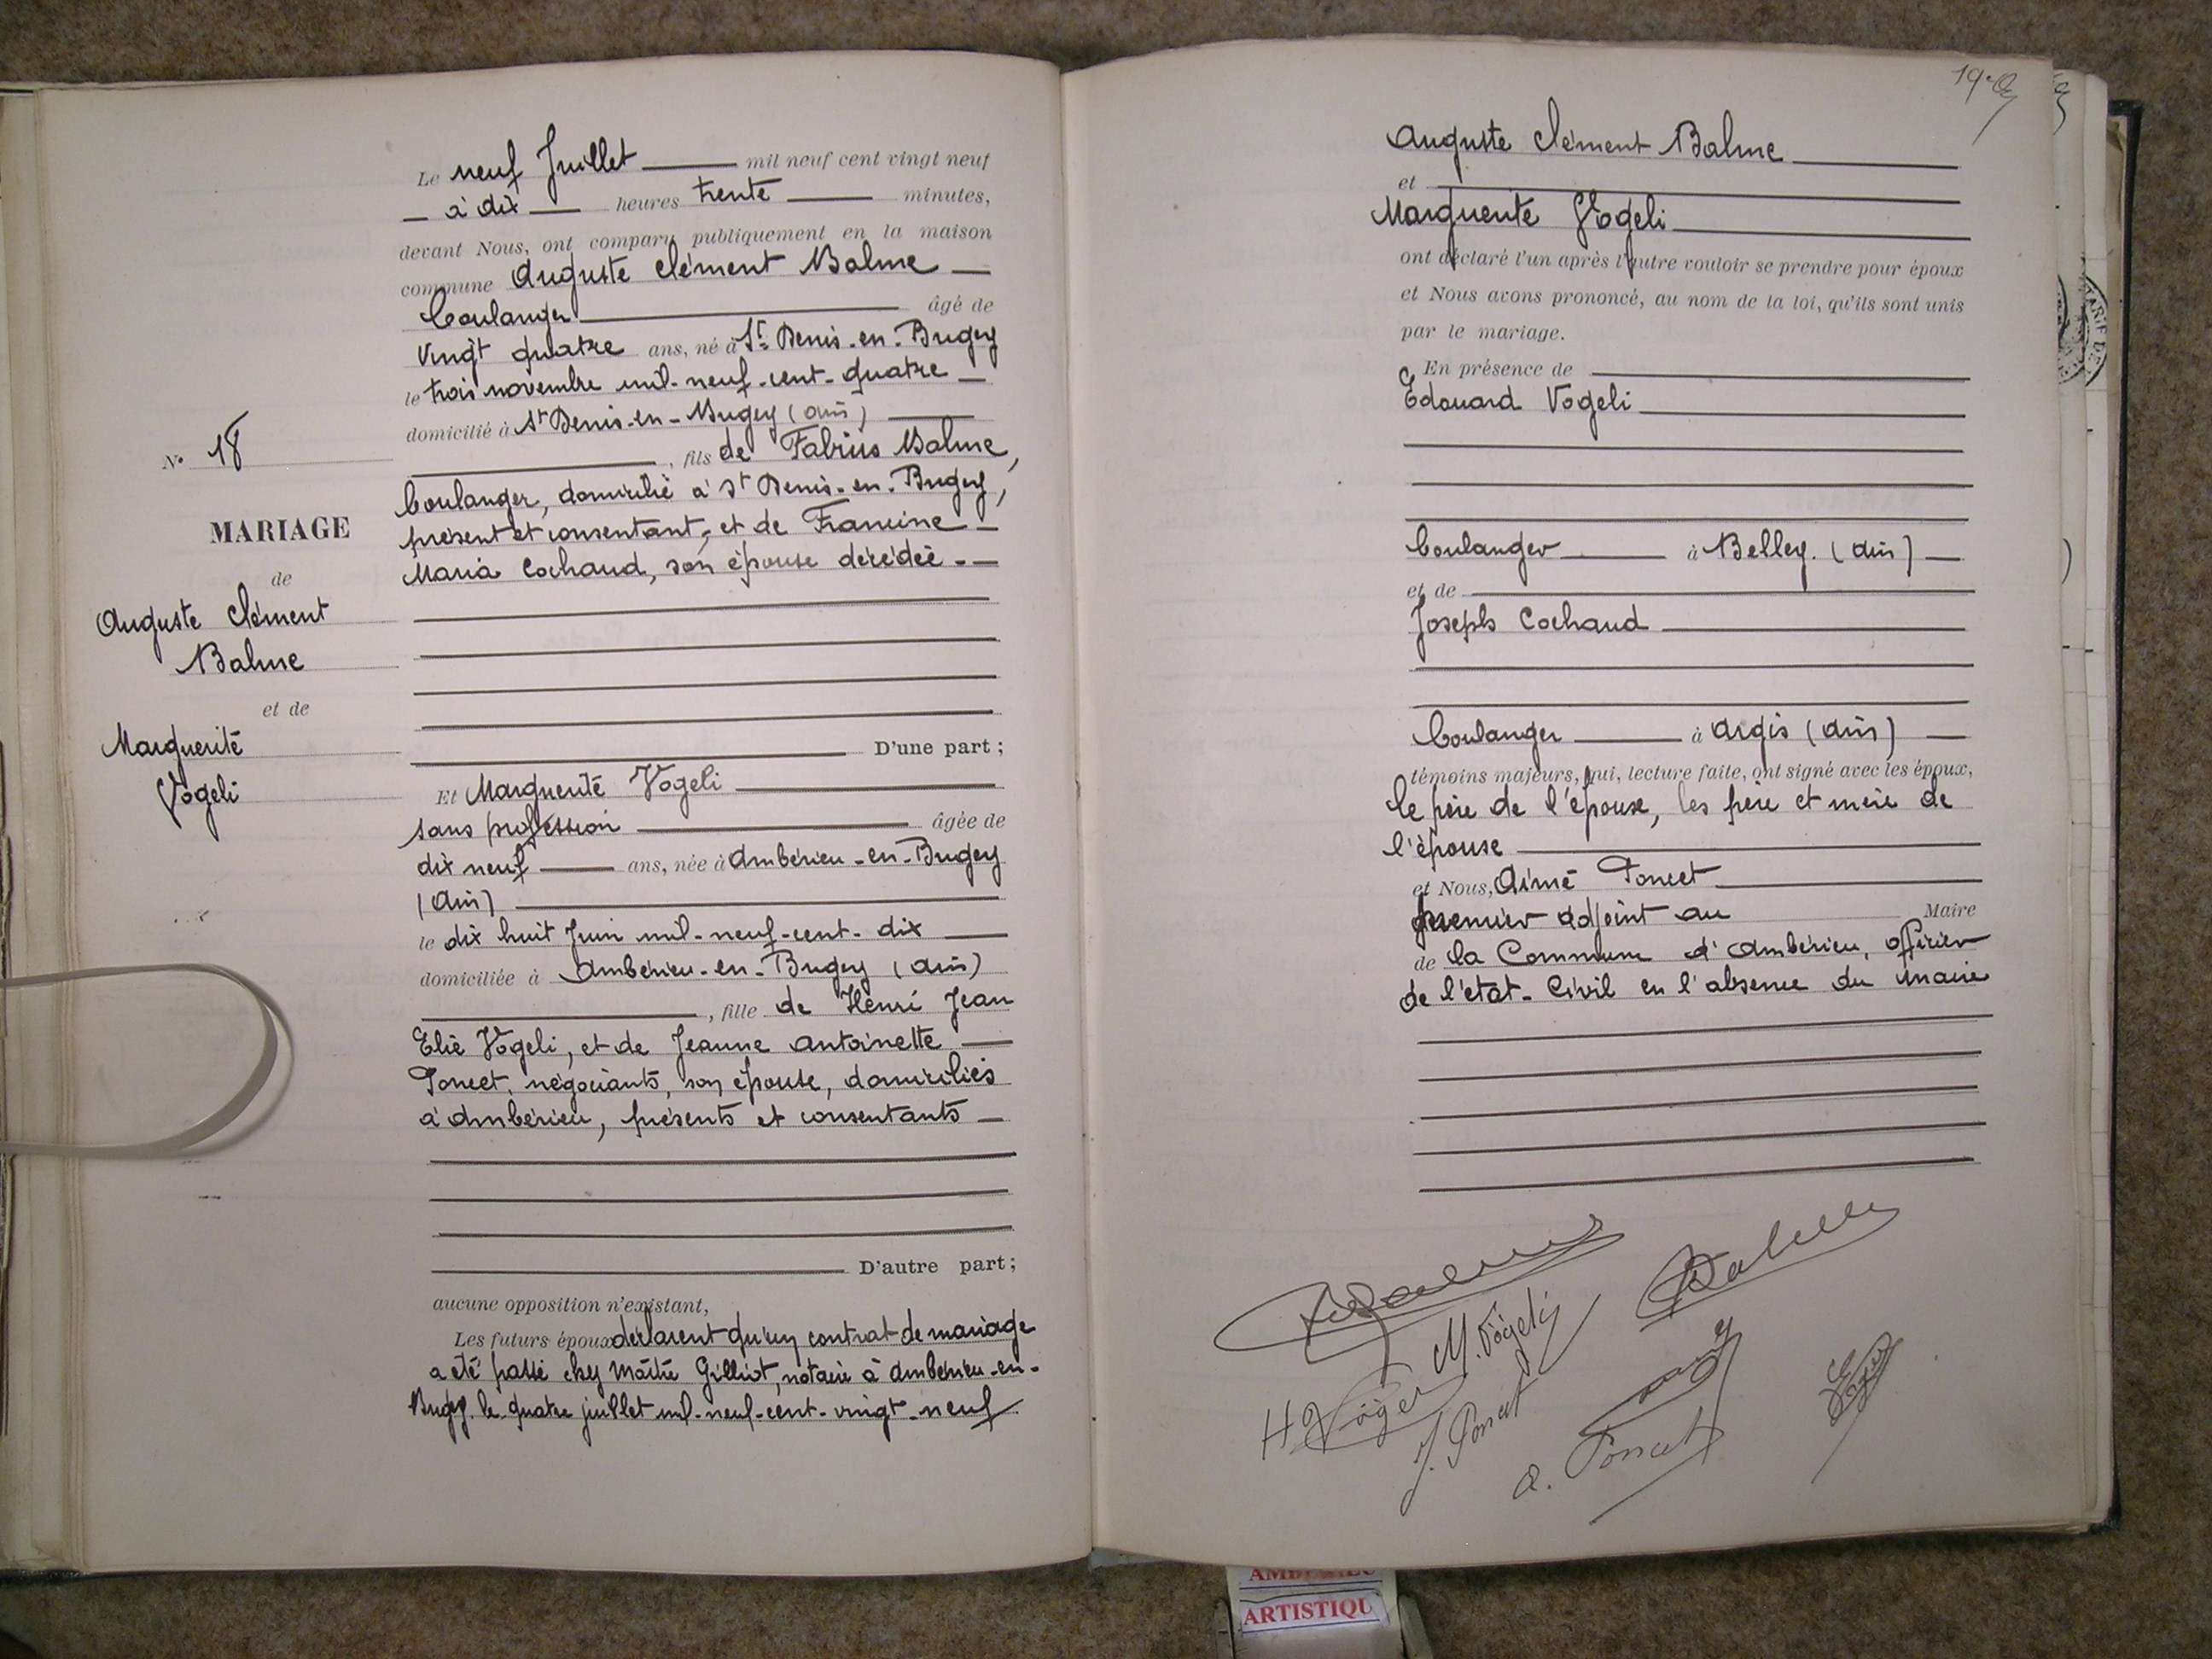 N° 18
MARIAGE
de
Auguste Clément
Balme
et de
Marguerite
Vogeli
Le neuf Juillet mil neuf cent vingt neuf
à dix heures trente minutes,
devant Nous, ont comparu publiquement en la maison
commune Auguste Clément Balme
boulanger âgé de
vingt quatre ans, né à St Denis-en-Bugey
le trois novembre mil-neuf-cent-quatre
domicilié à St Denis-en-Bugey (Ain)
, fils de Fabius Balme,
boulanger, domicilié à St Denis-en-Bugey,
présent et consentant, et de Francine
Maria Cochaud, son épouse décédée.
D'une part ;
Et Marguerite Vogeli
sans profession âgée de
dix neuf ans, née à Ambérieu-en-Bugey
(Ain)
le dix huit Juin mil-neuf-cent-dix
domiciliée à Ambérieu-en-Bugey (Ain)
, fille de Henri Jean
Elie Vogeli, et de Jeanne Antoinette
Poncet, négociants, son épouse, domiciliés
à Ambérieu, présents et consentants
D'autre part ;
aucune opposition n'existant,
Les futurs époux déclarent qu'un contrat de mariage
a été passé chez Maître Gilliot, notaire à Ambérieu-en-
Bugey, le quatre juillet mil-neuf-cent-vingt-neuf
Auguste Clément Balme
et
Marguerite Vogeli
ont déclaré l'un après l'autre vouloir se prendre pour époux
et Nous avons prononcé, au nom de la loi, qu'ils sont unis
par le mariage.
En présence de
Edouard Vogeli
boulanger à Belley. (Ain)
et de
Joseph Cochaud
boulanger à Argis (Ain)
témoins majeurs, qui, lecture faite, ont signé avec les époux,
le père de l'épouse, les père et mère de
l'épouse
et Nous, Aimé Poncet
premier adjoint au Maire
de la Commune d'Ambérieu, officier
de l'état-Civil en l'absence du Maire
M. Vögeli
H Vöge
J. Poncet
A. Poncet
ARTISTIQU